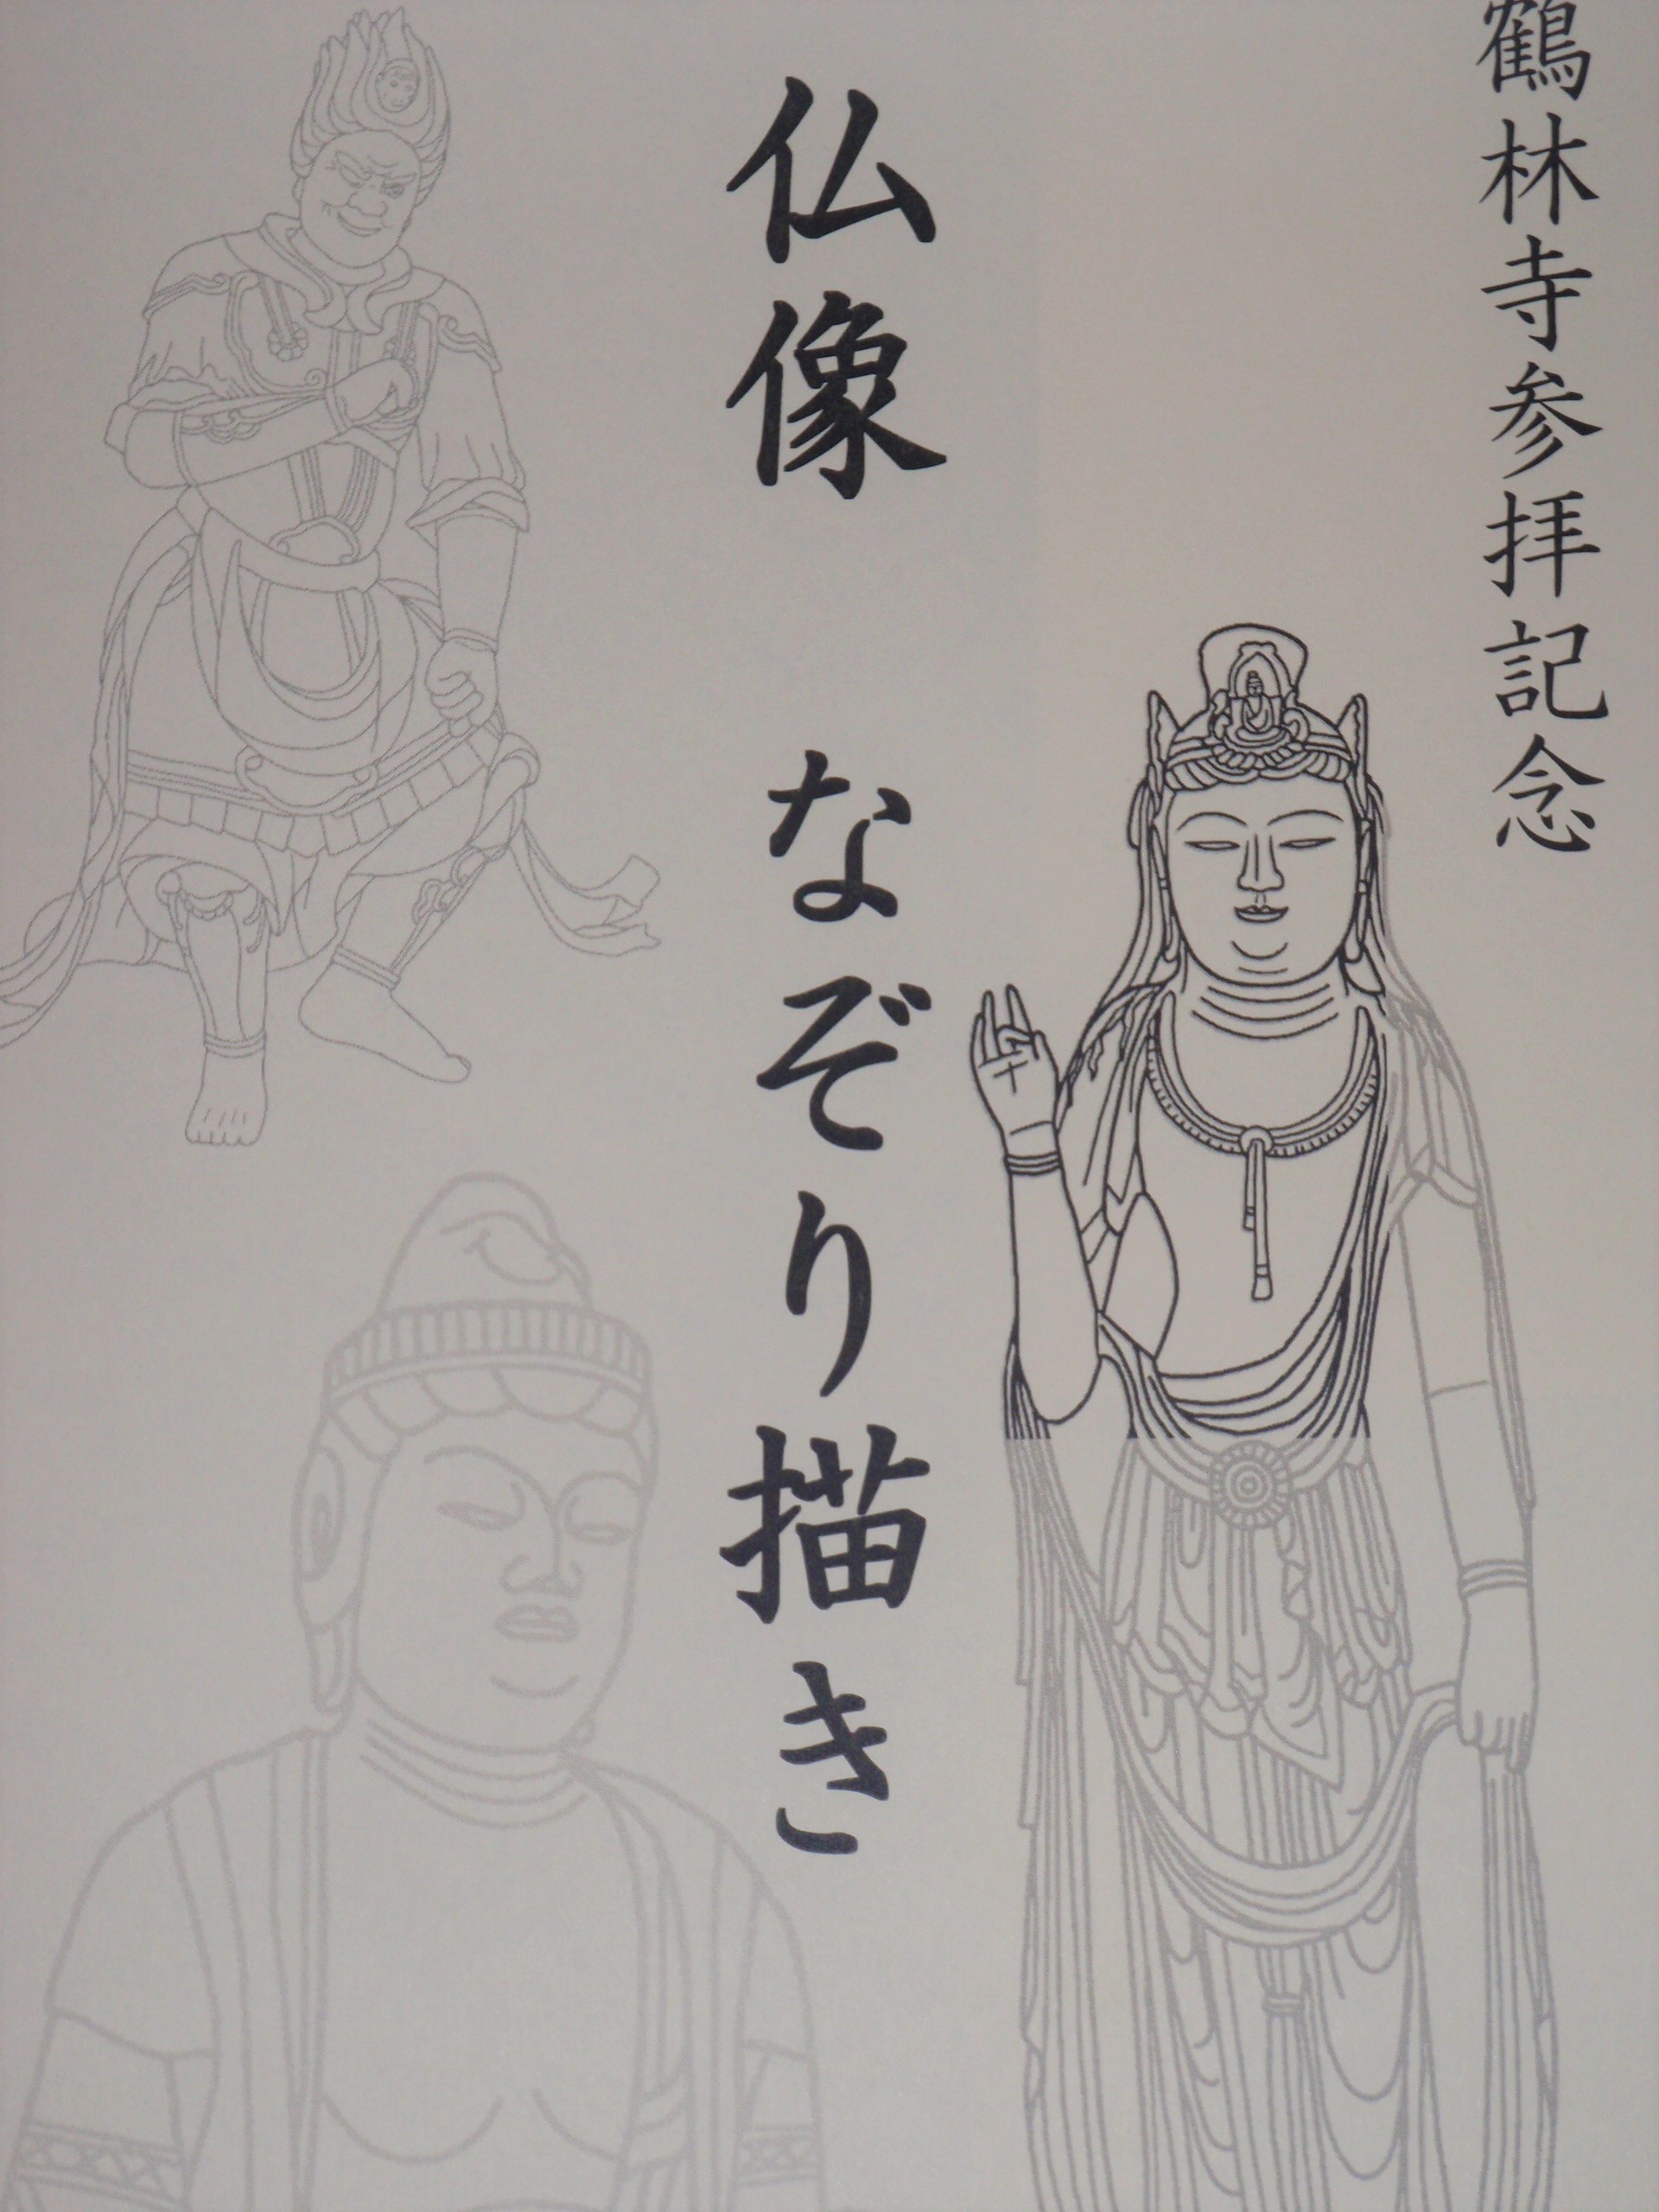 鶴林寺参拝記念
仏像 なぞり描き